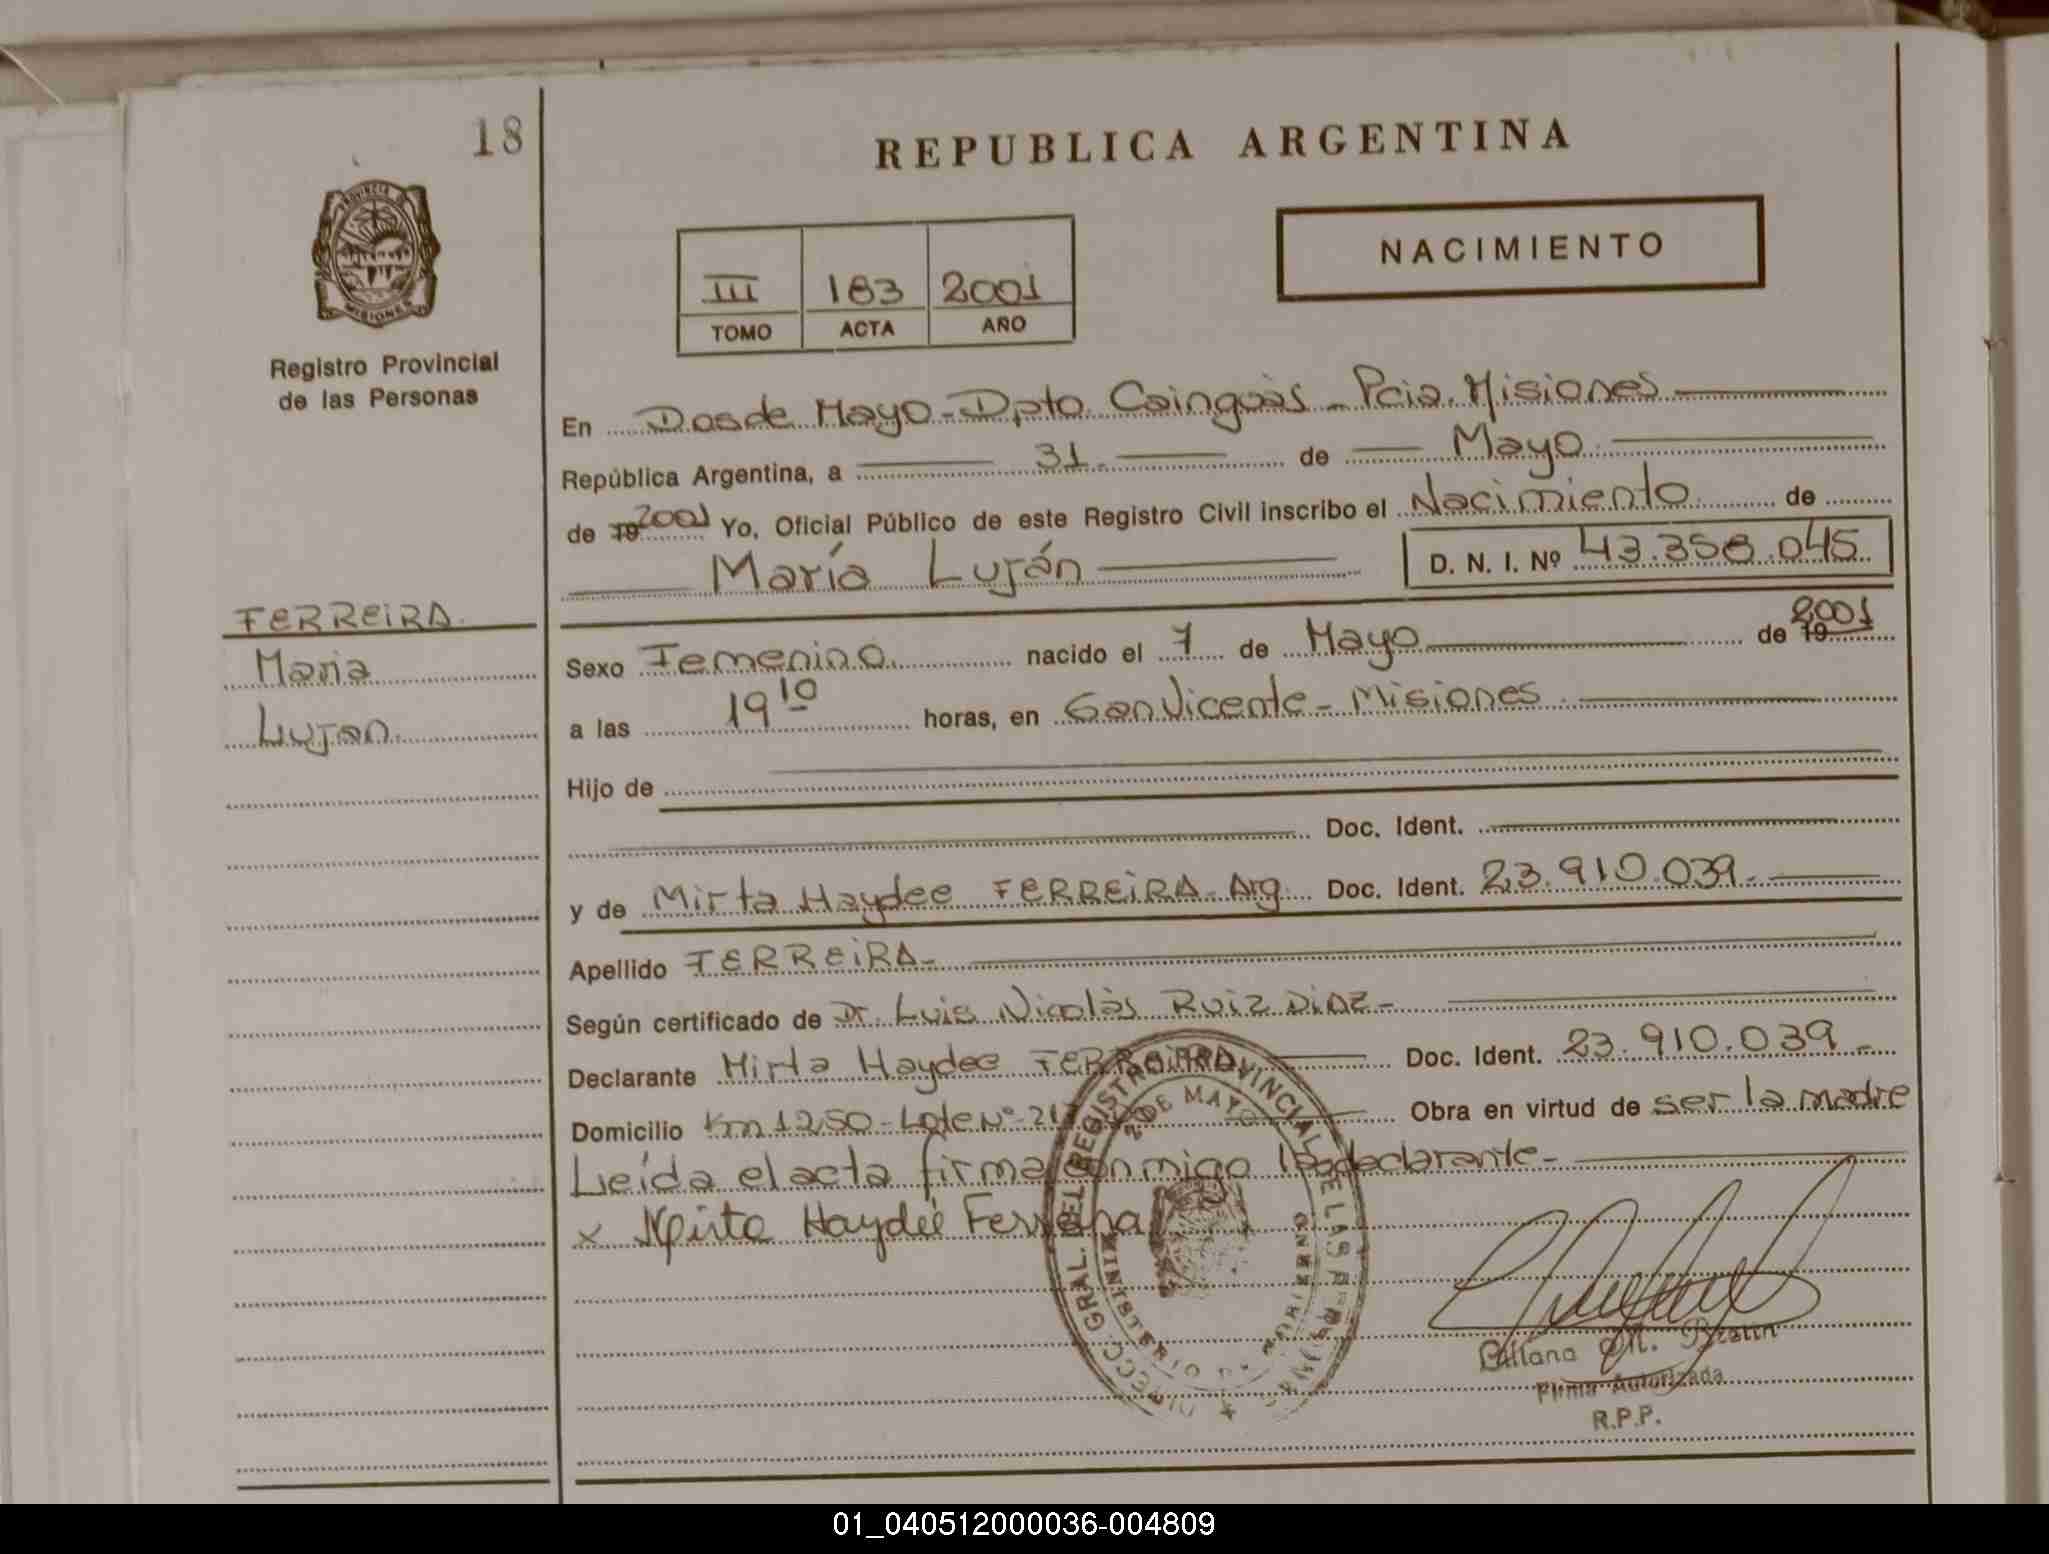 18
REPUBLICA ARGENTINA
PROVINCIA DE
MISIONES
Registro Provincial
de las Personas
NACIMIENTO
III 183 2001
TOMO ACTA AÑO
En Dos de Mayo - Dpto. Cainguàs - Pcia. Misiones
República Argentina, a 31 de Mayo
de 19 2001 Yo, Oficial Público de este Registro Civil inscribo el Nacimiento de
María Luján D. N. I. Nº 43.358.045
FERREIRA.
Maria
Lujan.
Sexo Femenino nacido el 7 de Mayo de 19 2001
a las 19 10 horas, en San Vicente - Misiones
Hijo de
Doc. Ident.
y de Mirta Haydee FERREIRA - Arg. Doc. Ident. 23.910.039.-
Apellido FERREIRA-
Según certificado de Dr. Luis Nicolàs RUIZ DIAZ-
Declarante Mirta Haydee FERREIRA Doc. Ident. 23.910.039-
Domicilio Km 1250 - Lote Nº 21 Obra en virtud de ser la madre
Leída el acta firma conmigo la declarante-
x Mirta Haydeé Ferreira
DIRECC. GRAL. DEL REGISTRO PROVINCIAL DE LAS PERSONAS
2 DE MAYO
MINISTERIO
Liliana M.
Firma Autorizada
R.P.P.
01_040512000036-004809